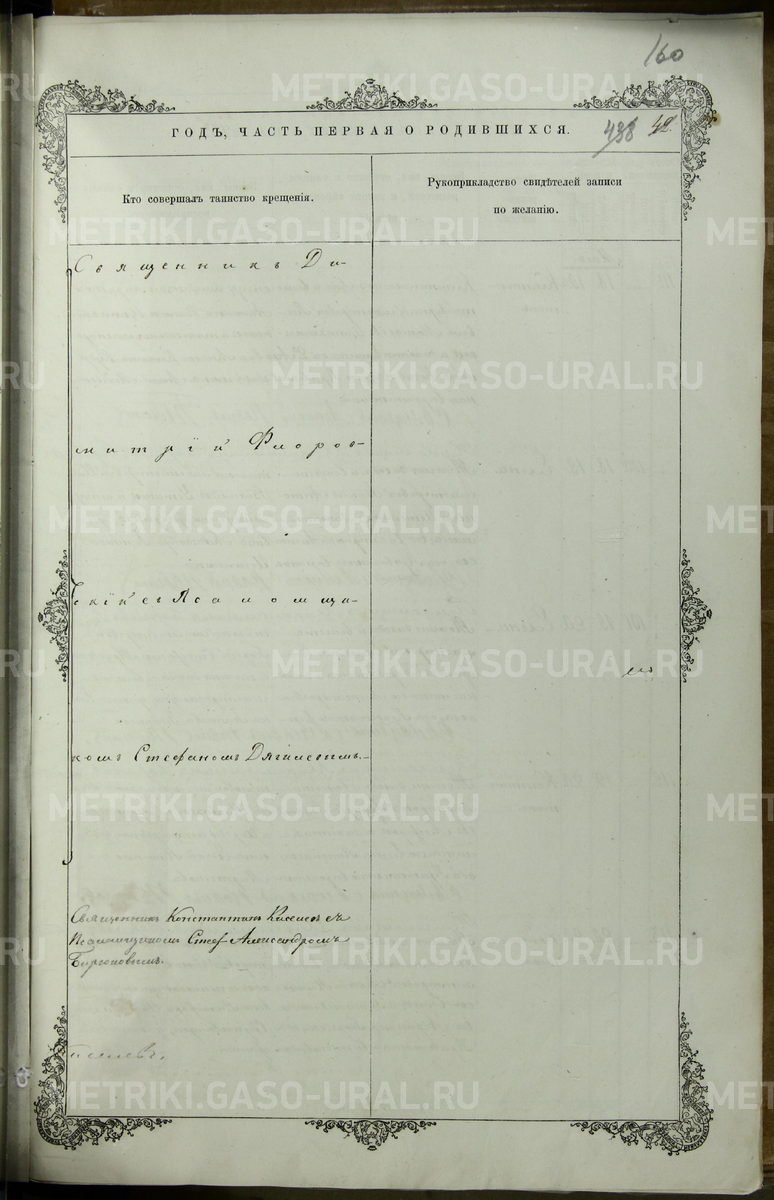 160
ГОДЪ, ЧАСТЬ ПЕРВАЯ О РОДИВШИХСЯ.
438 42
Кто совершалъ таинство крещенія.
Рукоприкладство свидѣтелей записи
по желанію.
Священникъ Ди-
митрій Флоров-
скій съ Псаломщи-
комъ Стефаномъ Дягилевымъ.
Священникъ Константинъ Киселевъ съ
Псаломщикомъ Александромъ
METRIKI.GASO-URAL.RU